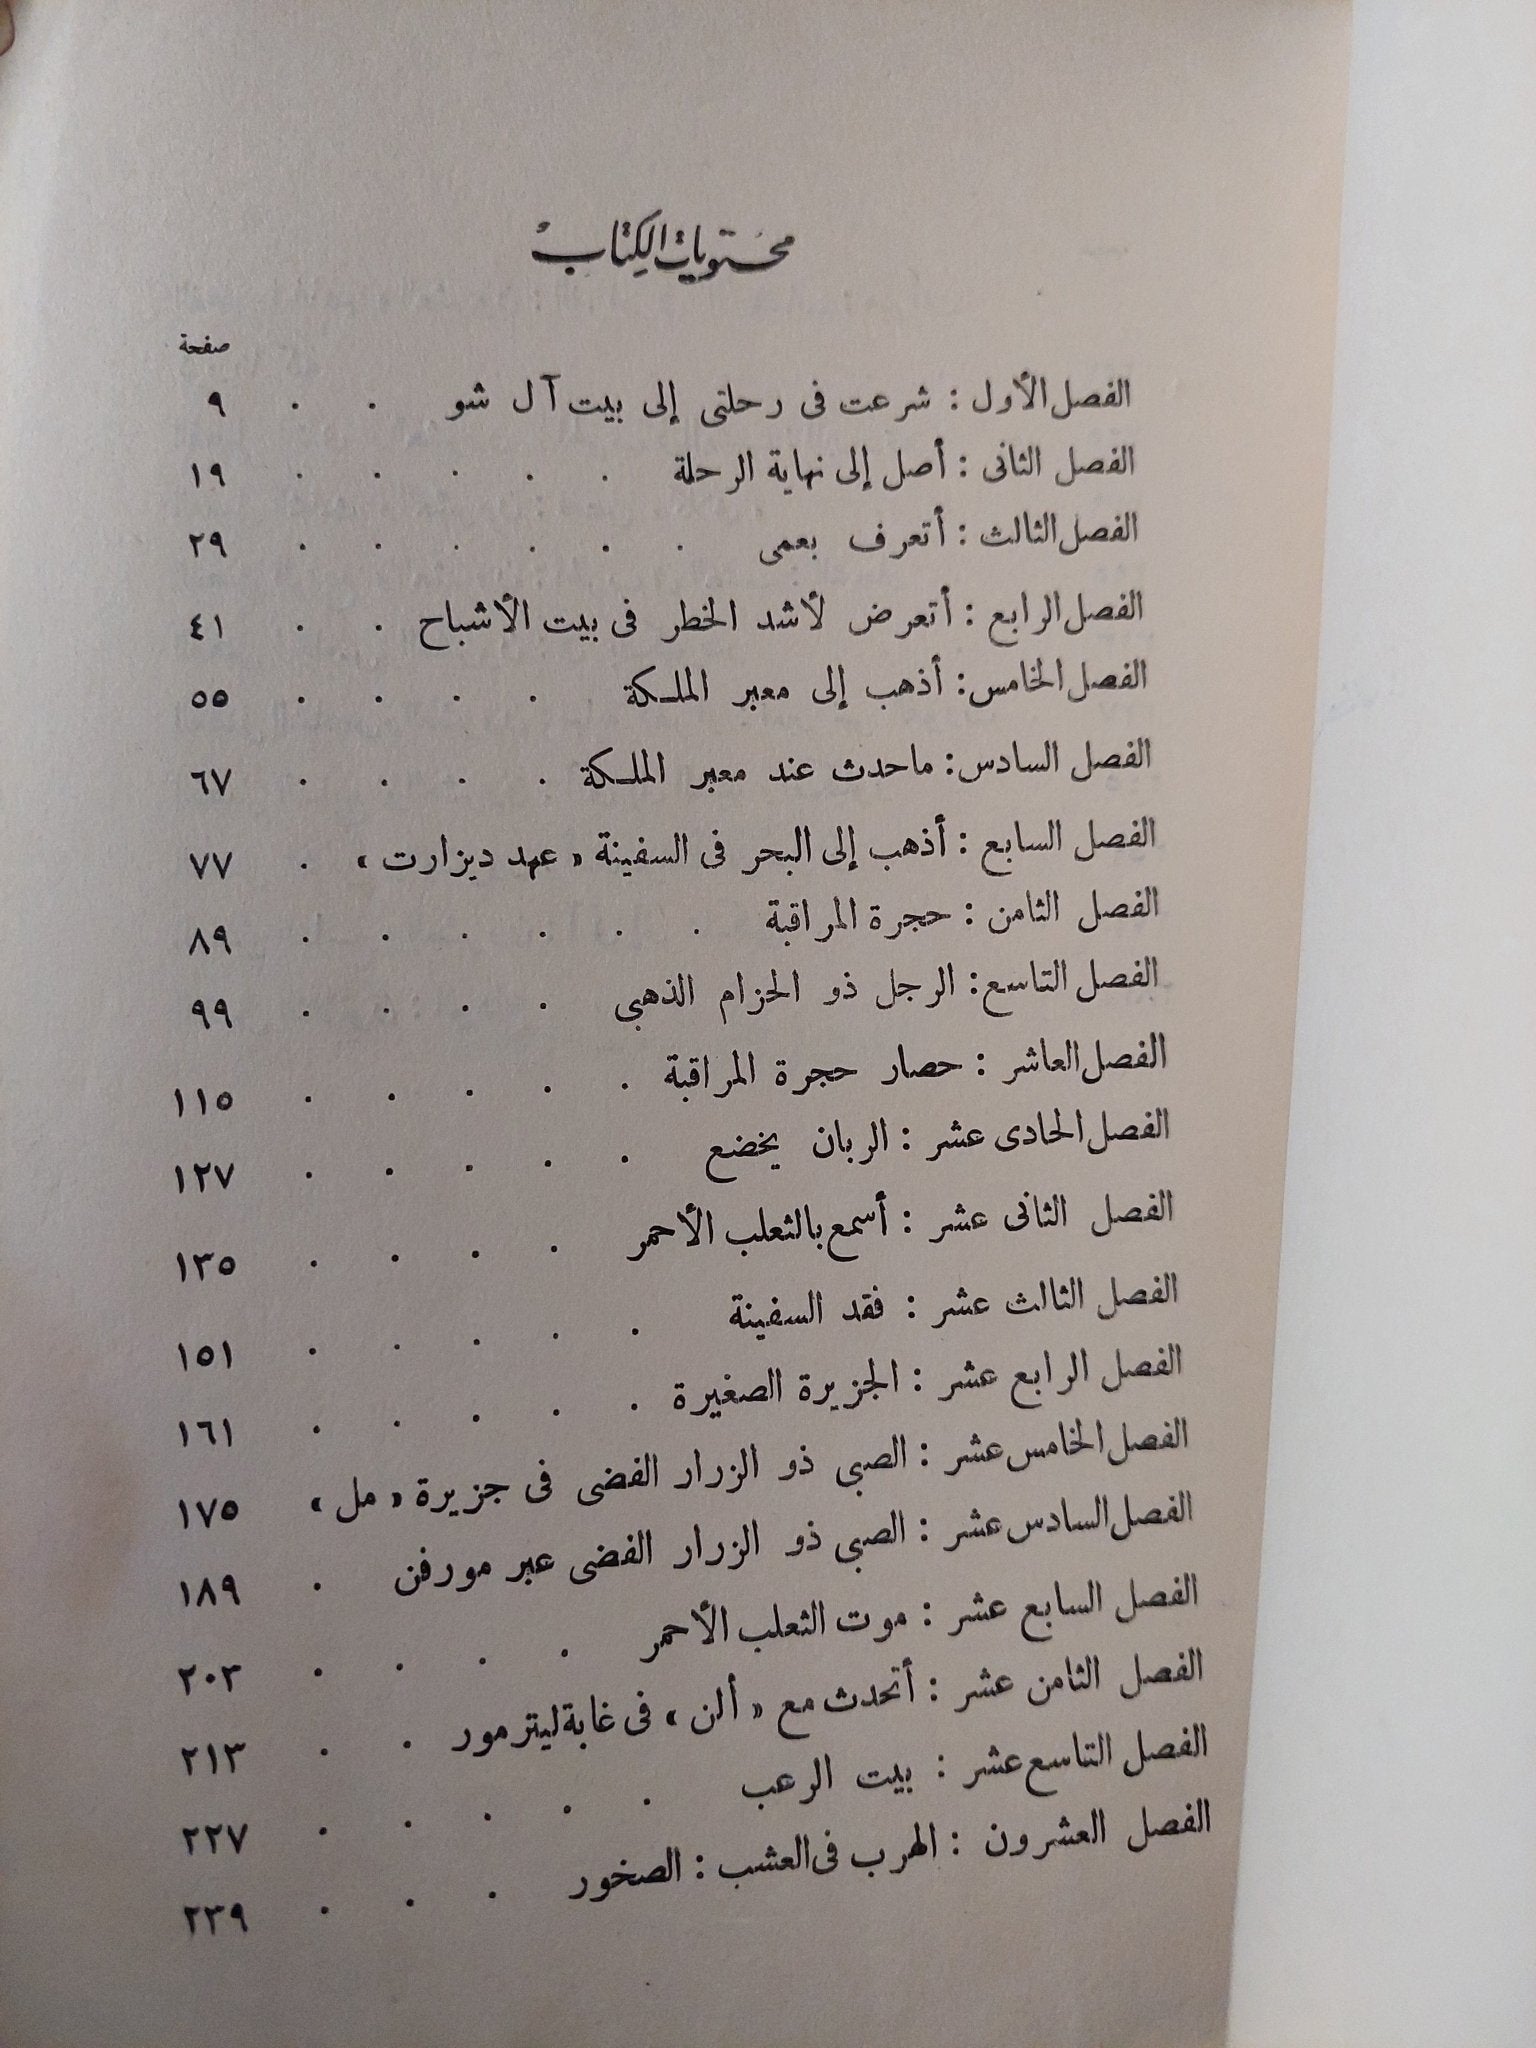 محتويات الكتاب
صفحة
الفصل الأول : شرعت فى رحلتى إلى بيت آل شو . . ٩
الفصل الثانى : أصل إلى نهاية الرحلة . . . . . ١٩
الفصل الثالث : أتعرف بعمى . . . . . . ٢٩
الفصل الرابع : أتعرض لأشد الخطر فى بيت الأشباح . . ٤١
الفصل الخامس : أذهب إلى معبر الملكة . . . . ٥٥
الفصل السادس : ماحدث عند معبر الملكة . . . . ٦٧
الفصل السابع : أذهب إلى البحر فى السفينة « عهد ديزارت » . ٧٧
الفصل الثامن : حجرة المراقبة . . . . . . ٨٩
الفصل التاسع : الرجل ذو الحزام الذهبى . . . . ٩٩
الفصل العاشر : حصار حجرة المراقبة . . . . . ١١٥
الفصل الحادى عشر : الربان يخضع . . . . . ١٢٧
الفصل الثانى عشر : أسمع بالثعلب الأحمر . . . . ١٣٥
الفصل الثالث عشر : فقد السفينة . . . . . ١٥١
الفصل الرابع عشر : الجزيرة الصغيرة . . . . . ١٦١
الفصل الخامس عشر : الصبى ذو الزرار الفضى فى جزيرة « مل » ١٧٥
الفصل السادس عشر : الصبى ذو الزرار الفضى عبر مورفن . ١٨٩
الفصل السابع عشر : موت الثعلب الأحمر . . . . ٢٠٣
الفصل الثامن عشر : أتحدث مع « ألن » فى غابة ليترمور . . ٢١٣
الفصل التاسع عشر : بيت الرعب . . . . . ٢٢٧
الفصل العشرون : الهرب فى العشب : الصخور . . . ٢٣٩